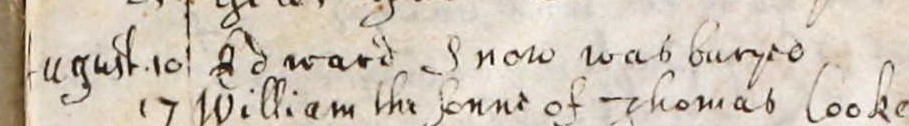 August 10 Edward Snow was buryed
17 William the sonne of Thomas Cooke